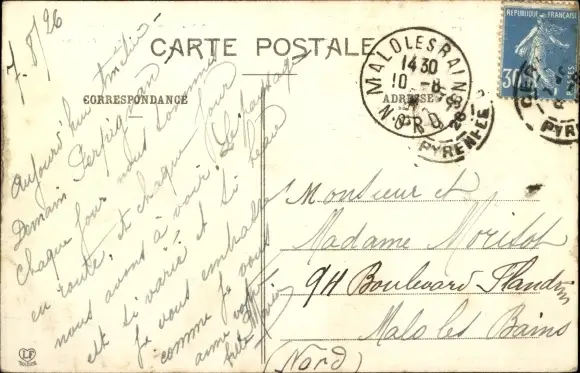 7/8/26
CARTE POSTALE
CORRESPONDANCE
ADRESSE
RÉPUBLIQUE FRANÇAISE
30
MALO LES BAINS
14 30
10 - 8
26
NORD
PYRENEES
Aujourd'hui
Demain Perpignan
Chaque jour nous sommes
en route, et chaque jour
nous avons à voir. Le paysage
est si varié et si beau
Je vous embrasse
comme je vous
aime votre
Monsieur et
Madame Morisot
94 Boulevard Flandrin
Malo les Bains
(Nord)
LF